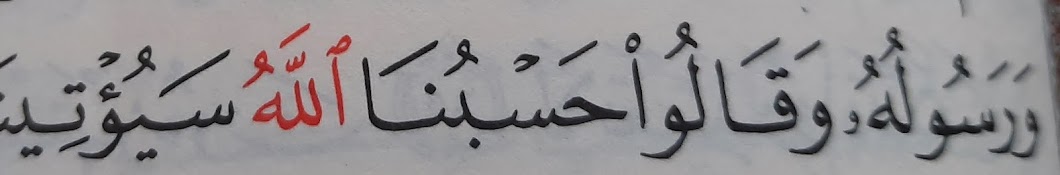 وَرَسُولُهُۥ وَقَالُوا۟ حَسْبُنَا ٱللَّهُ سَيُؤْتِينَ